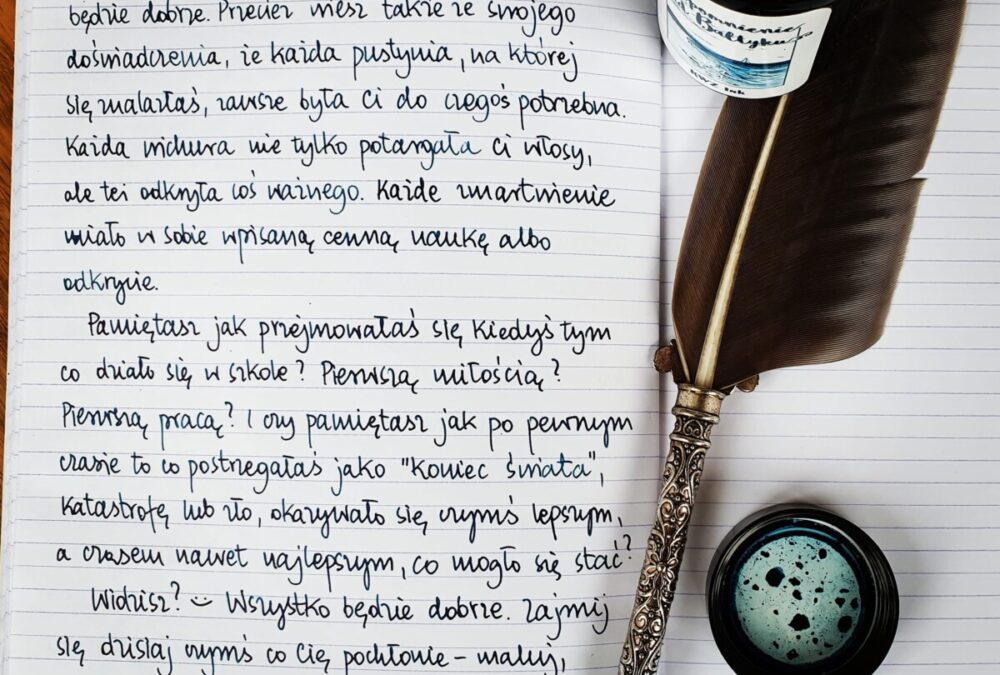 będzie dobrze. Przecież wiesz także ze swojego
doświadczenia, że każda pustynia, na której
się znalazłaś, zawsze była Ci do czegoś potrzebna.
Każda wichura nie tylko potargała Ci włosy,
ale też odkryła coś ważnego. Każde zmartwienie
miało w sobie wpisaną cenną naukę albo
odkrycie.
Pamiętasz jak przejmowałaś się kiedyś tym
co działo się w szkole? Pierwszą miłością?
Pierwszą pracą? I czy pamiętasz jak po pewnym
czasie to co postrzegałaś jako "koniec świata",
katastrofę lub zło, okazywało się czymś lepszym,
a czasem nawet najlepszym, co mogło się stać?
Widzisz? Wszystko będzie dobrze. Zajmij
się dzisiaj czymś co Cię pochłonie – maluj,
Bałtyku
KWZ Ink